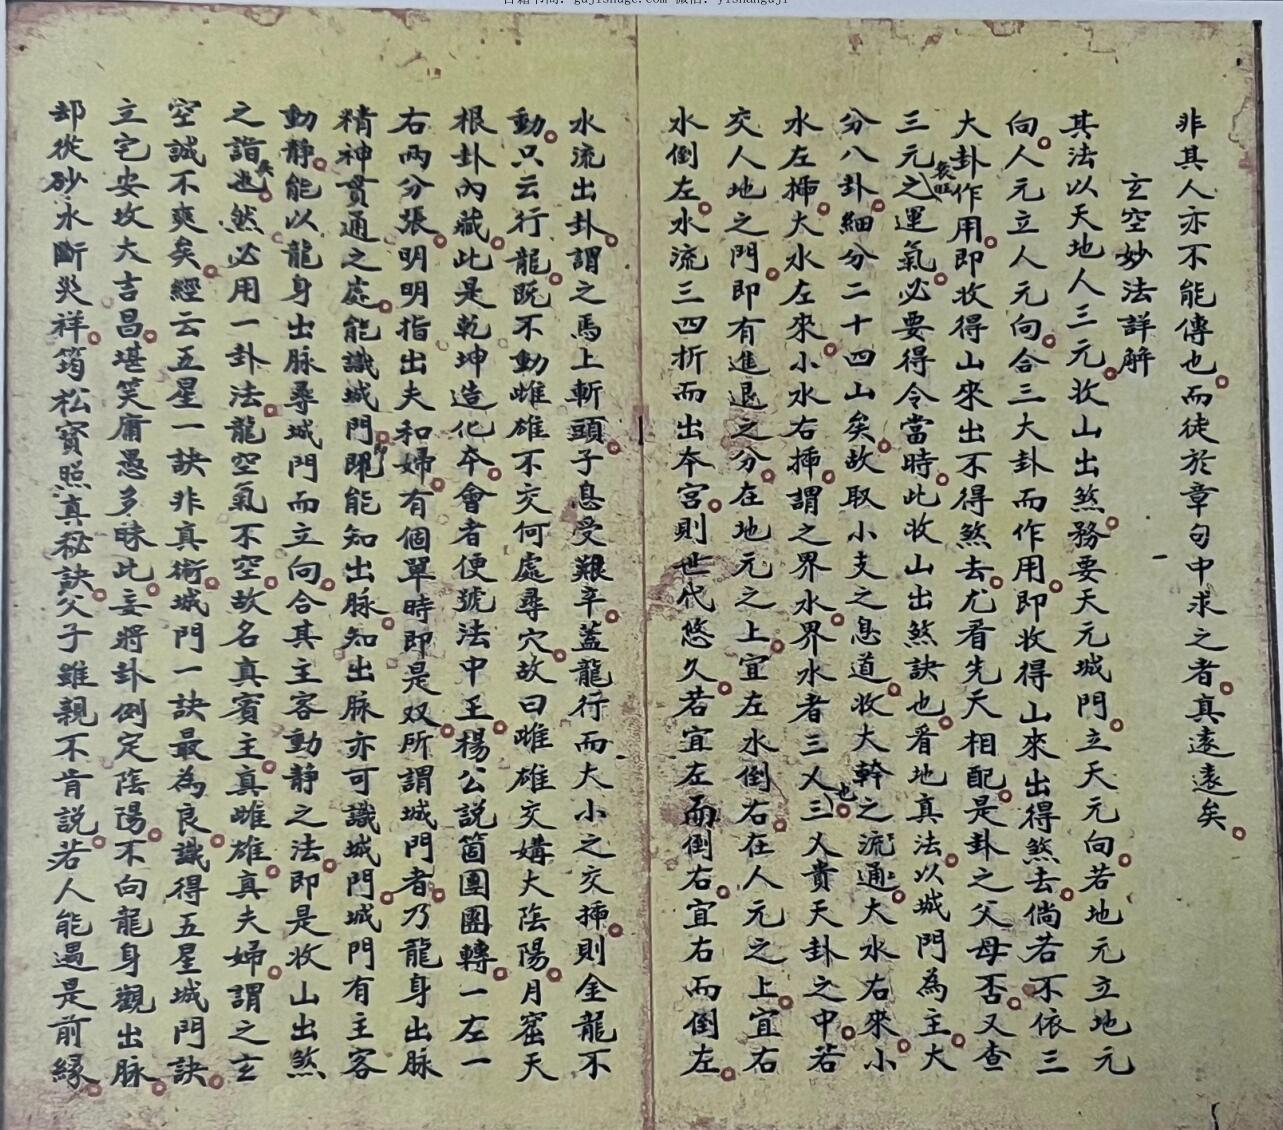 非其人亦不能傳也而徒於章句中求之者真遠遠矣
玄空妙法詳解
其法以天地人三元收山出煞務要天元城門立天元向若地元立地元
向人元立人元向合三大卦而作用即收得山來出得煞去倘若不依三
大卦作用即收得山來出不得煞去尤看先天相配是卦之父母否又查
三元之衰旺運氣必要得令當時此收山出煞訣也看地真法以城門為主大
分八卦細分二十四山矣故取小支之息道收大幹之流通大水右來小
水左揷大水左來小水右揷謂之界水界水者三乂也三乂貴天卦之中若
交人地之門即有進退之分在地元之上宜左水倒右在人元之上宜右
水倒左水流三四折而出夲宮則世代悠久若宜左而倒右宜右而倒左
水流出卦謂之馬上斬頭子息受艱辛蓋龍行而大小之交揷則金龍不
動只云行龍既不動雌雄不交何處尋穴故曰雌雄交媾大陰陽月窟天
根卦內藏此是乾坤造化夲會者便號法中王楊公説箇團團轉一左一
右兩分張明明指出夫和婦有個單時即是双所謂城門者乃龍身出脉
精神贯通之處能識城門即能知出脉知出脉亦可識城門城門有主客
動靜能以龍身出脉尋城門而立向合其主客動靜之法即是收山出煞
之詣矣然必用一卦法龍空氣不空故名真賓主真雌雄真夫婦謂之玄
空誠不爽矣經云五星一訣非真術城門一訣最為良識得五星城門訣
立宅安坟大吉昌堪笑庸愚多昧此妄將卦例定陰陽不向龍身觀出脉
却從砂水斷災祥筠松寳照真秘訣父子雖親不肯説若人能遇是前緣